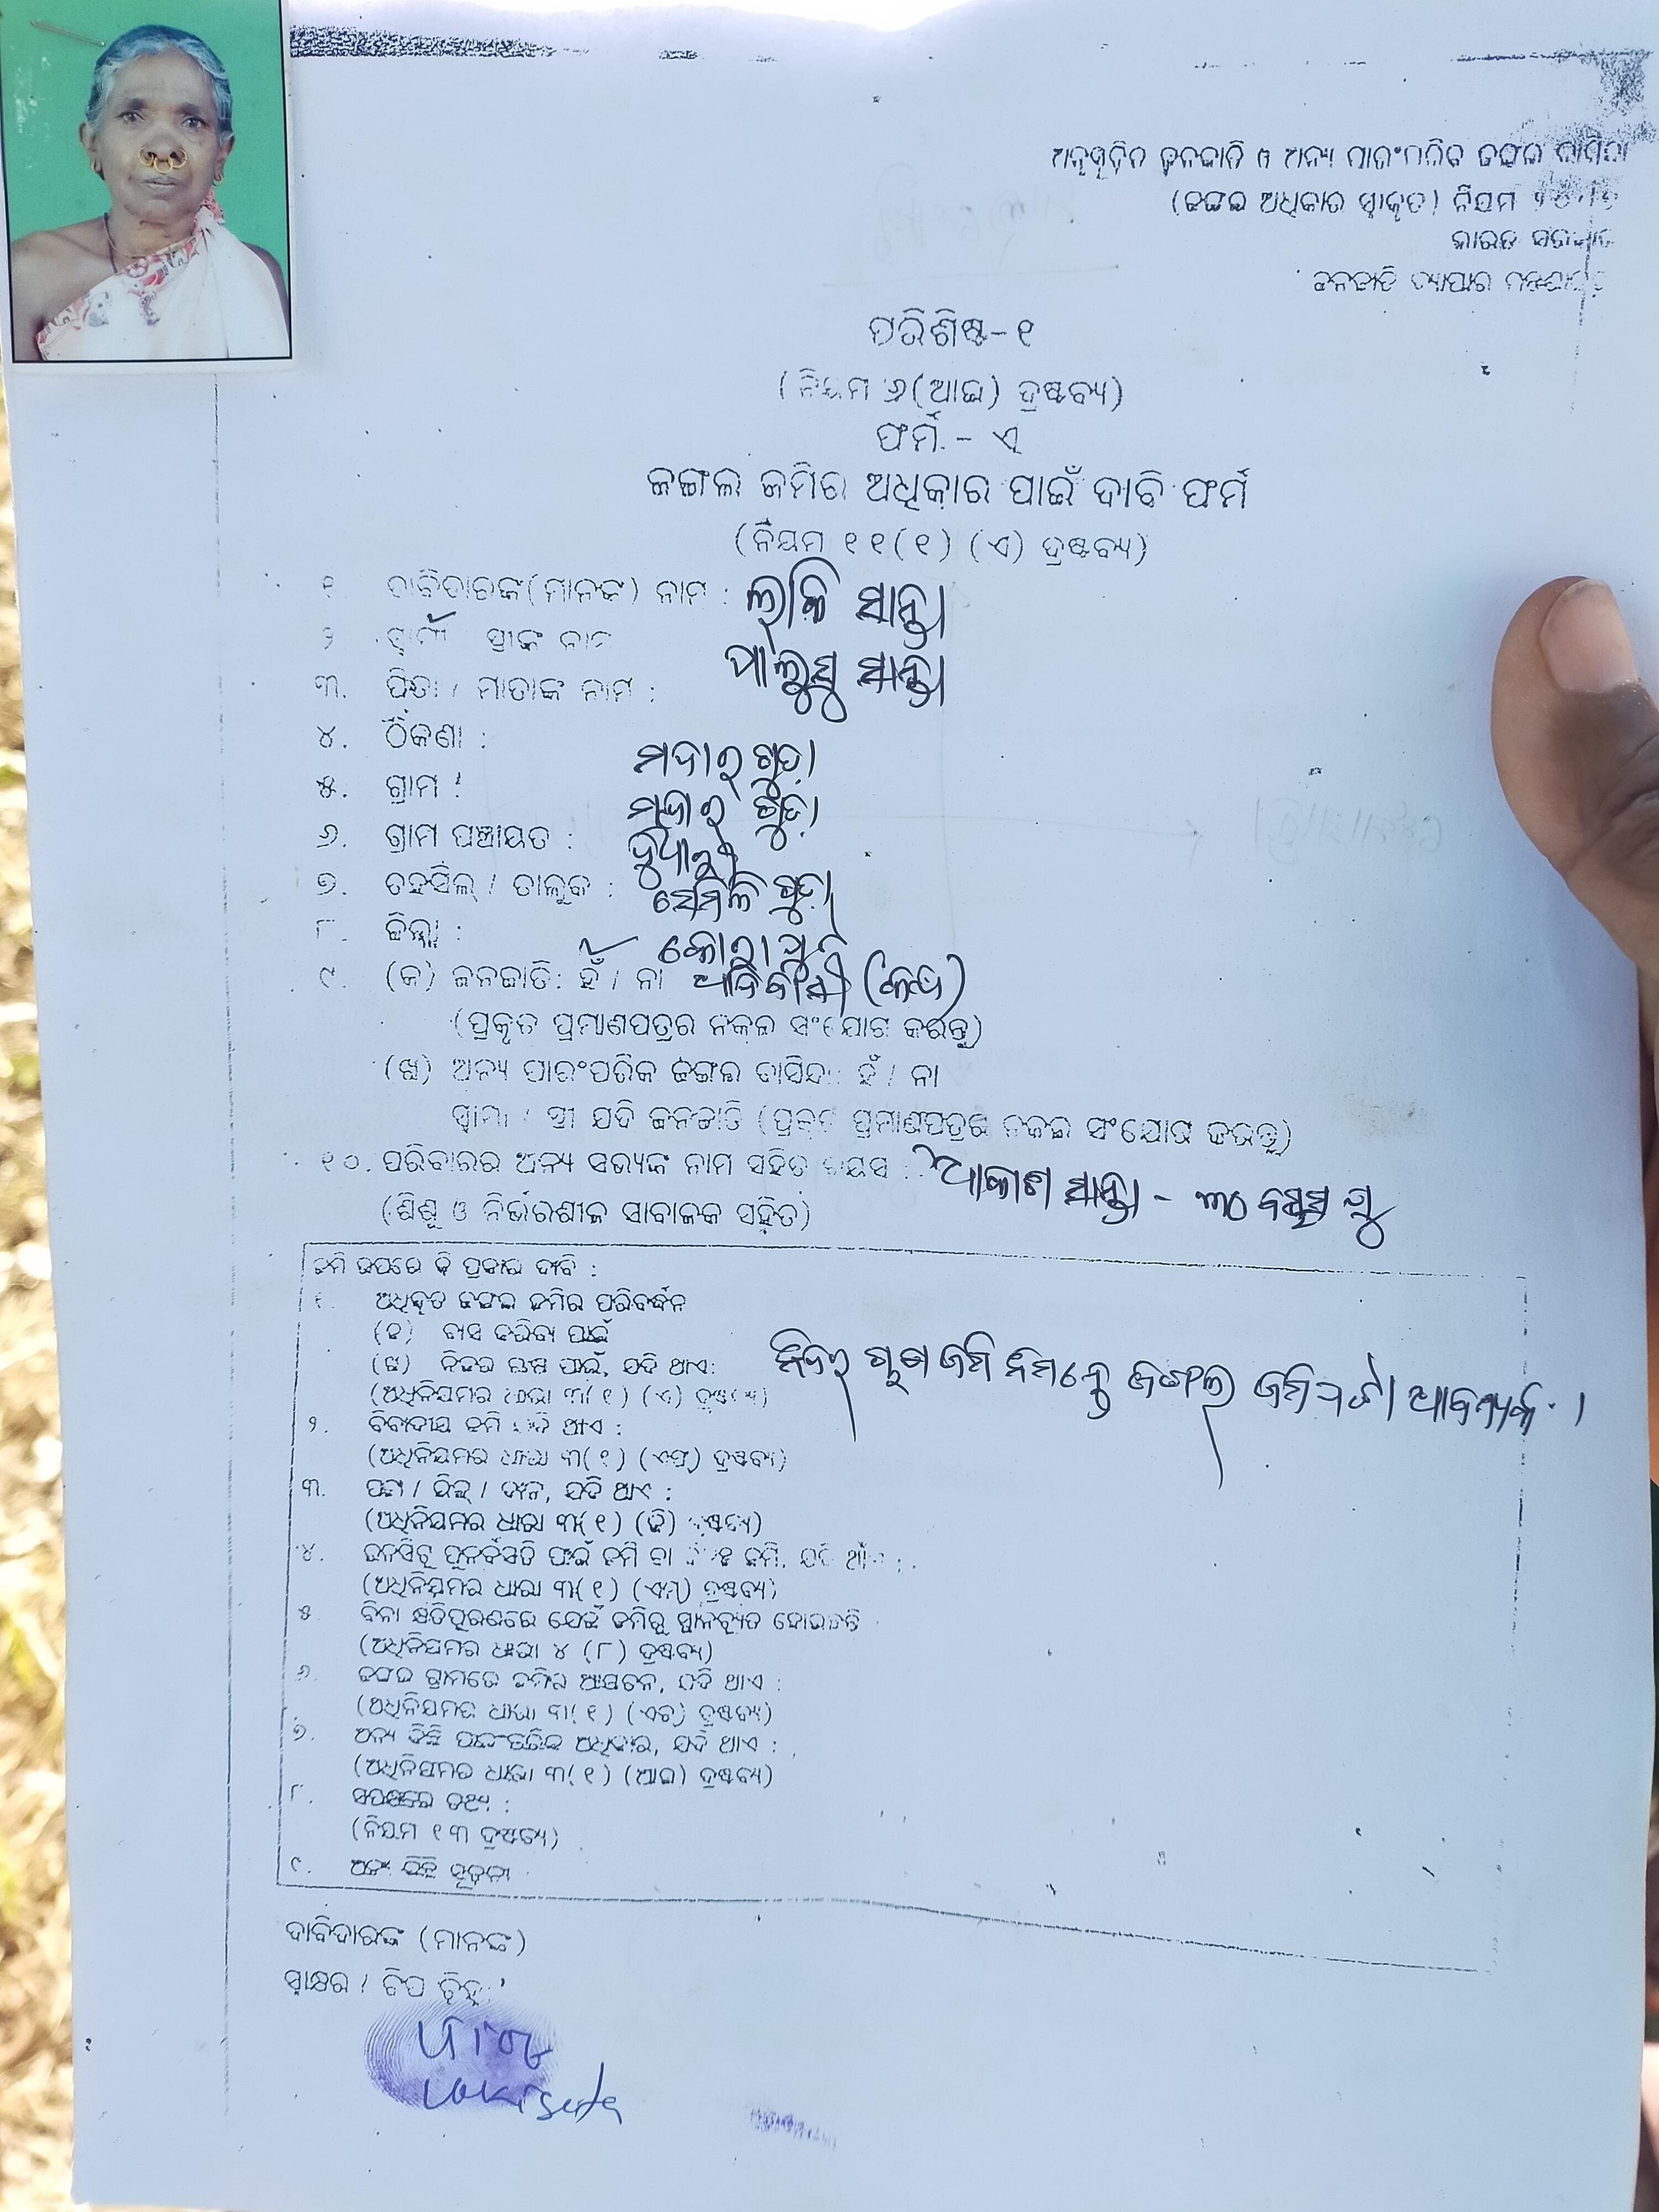 ଅନୁସୂଚିତ ଜନଜାତି ଓ ଅନ୍ୟ ପାରଂପରିକ ଜଙ୍ଗଲ ବାସିନ୍ଦା
(ଜଙ୍ଗଲ ଅଧିକାର ସ୍ୱୀକୃତ) ନିୟମ
ଭାରତ ସରକାର
ଜନଜାତି ବ୍ୟାପାର
ପରିଶିଷ୍ଟ-୧
(ନିୟମ ୬(ଆଇ) ଦ୍ରଷ୍ଟବ୍ୟ)
ଫର୍ମ - ଏ
ଜଙ୍ଗଲ ଜମିର ଅଧିକାର ପାଇଁ ଦାବି ଫର୍ମ
(ନିୟମ ୧୧(୧) (ଏ) ଦ୍ରଷ୍ଟବ୍ୟ)
୧ ଦାବିଦାରଙ୍କ(ମାନଙ୍କ) ନାମ : ଲାକି ସାନ୍ତା
୨ ସ୍ୱାମୀ ସ୍ତ୍ରୀଙ୍କ ନାମ ପାଲୁସୁ ସାନ୍ତା
୩. ପିତା / ମାତାଙ୍କ ନାମ :
୪. ଠିକଣା : ମଦାର୍ ଗୁଡ଼ା
୫. ଗ୍ରାମ : ଗୁଡ଼ା
୬. ଗ୍ରାମ ପଞ୍ଚାୟତ :
୭. ତହସିଲ୍ / ତାଲୁକ : ସେମିଳିଗୁଡ଼ା
୮. ଜିଲ୍ଲା : କୋରାପୁଟ
୯ (କ) ଜନଜାତି: ହଁ / ନା ଆଦିବାସୀ (କନ୍ଧ)
(ପ୍ରକୃତ ପ୍ରମାଣପତ୍ରର ନକଲ ସଂଯୋଗ କରନ୍ତୁ)
(ଖ) ଅନ୍ୟ ପାରଂପରିକ ଜଙ୍ଗଲ ବାସିନ୍ଦା: ହଁ / ନା
ସ୍ୱାମୀ / ସ୍ତ୍ରୀ ଯଦି ଜନଜାତି (ପ୍ରକୃତ ପ୍ରମାଣପତ୍ରର ନକଲ ସଂଯୋଗ କରନ୍ତୁ)
୧୦. ପରିବାରର ଅନ୍ୟ ସଭ୍ୟଙ୍କ ନାମ ସହିତ ବୟସ : ଆକାଶ ସାନ୍ତା - ୩୦
(ଶିଶୁ ଓ ନିର୍ଭରଶୀଳ ସାବାଳକ ସହିତ)
ଜମି ଉପରେ କି ପ୍ରକାର ଦାବି :
୧. ଅଧିକୃତ ଜଙ୍ଗଲ ଜମିର ପରିବର୍ଦ୍ଧନ
(କ) ବାସ କରିବା ପାଇଁ
(ଖ) ନିଜର ଚାଷ ପାଇଁ, ଯଦି ଥାଏ: ଜମି ନିମନ୍ତେ ଜଙ୍ଗଲ ଜମି ପଟ୍ଟା ଆବଶ୍ୟକ ।
(ଅଧିନିୟମର ଧାରା ୩(୧) (ଏ) ଦ୍ରଷ୍ଟବ୍ୟ)
୨. ବିବାଦୀୟ ଜମି ଯଦି ଥାଏ :
(ଅଧିନିୟମର ଧାରା ୩(୧) (ଏଫ୍) ଦ୍ରଷ୍ଟବ୍ୟ)
୩. ପଟ୍ଟା / ଲିଜ୍ / ଦାନ, ଯଦି ଥାଏ :
(ଅଧିନିୟମର ଧାରା ୩(୧) (ଜି) ଦ୍ରଷ୍ଟବ୍ୟ)
୪. ଜମି ବା ଜମି, ଯଦି ଥାଏ :
(ଅଧିନିୟମର ଧାରା ୩(୧) (ଏମ୍) ଦ୍ରଷ୍ଟବ୍ୟ)
୫ ବିନା କ୍ଷତିପୂରଣରେ ଯେଉଁ ଜମିରୁ ସ୍ଥାନଚ୍ୟୁତ ହୋଇଛନ୍ତି
(ଅଧିନିୟମର ଧାରା ୪ (୮) ଦ୍ରଷ୍ଟବ୍ୟ)
୬. ଜଙ୍ଗଲ ଗ୍ରାମରେ ଜମିର ଆୟତନ, ଯଦି ଥାଏ :
(ଅଧିନିୟମର ଧାରା ୩(୧) (ଏଚ୍) ଦ୍ରଷ୍ଟବ୍ୟ)
୭. ଅନ୍ୟ କିଛି ପାରଂପରିକ ଅଧିକାର, ଯଦି ଥାଏ :
(ଅଧିନିୟମର ଧାରା ୩(୧) (ଆଇ) ଦ୍ରଷ୍ଟବ୍ୟ)
୮. ସପକ୍ଷରେ ତଥ୍ୟ :
(ନିୟମ ୧୩ ଦ୍ରଷ୍ଟବ୍ୟ)
୯. ଅନ୍ୟ କିଛି ସୂଚନା
ଦାବିଦାରଙ୍କ (ମାନଙ୍କ)
ସ୍ୱାକ୍ଷର / ଟିପ ଚିହ୍ନ: